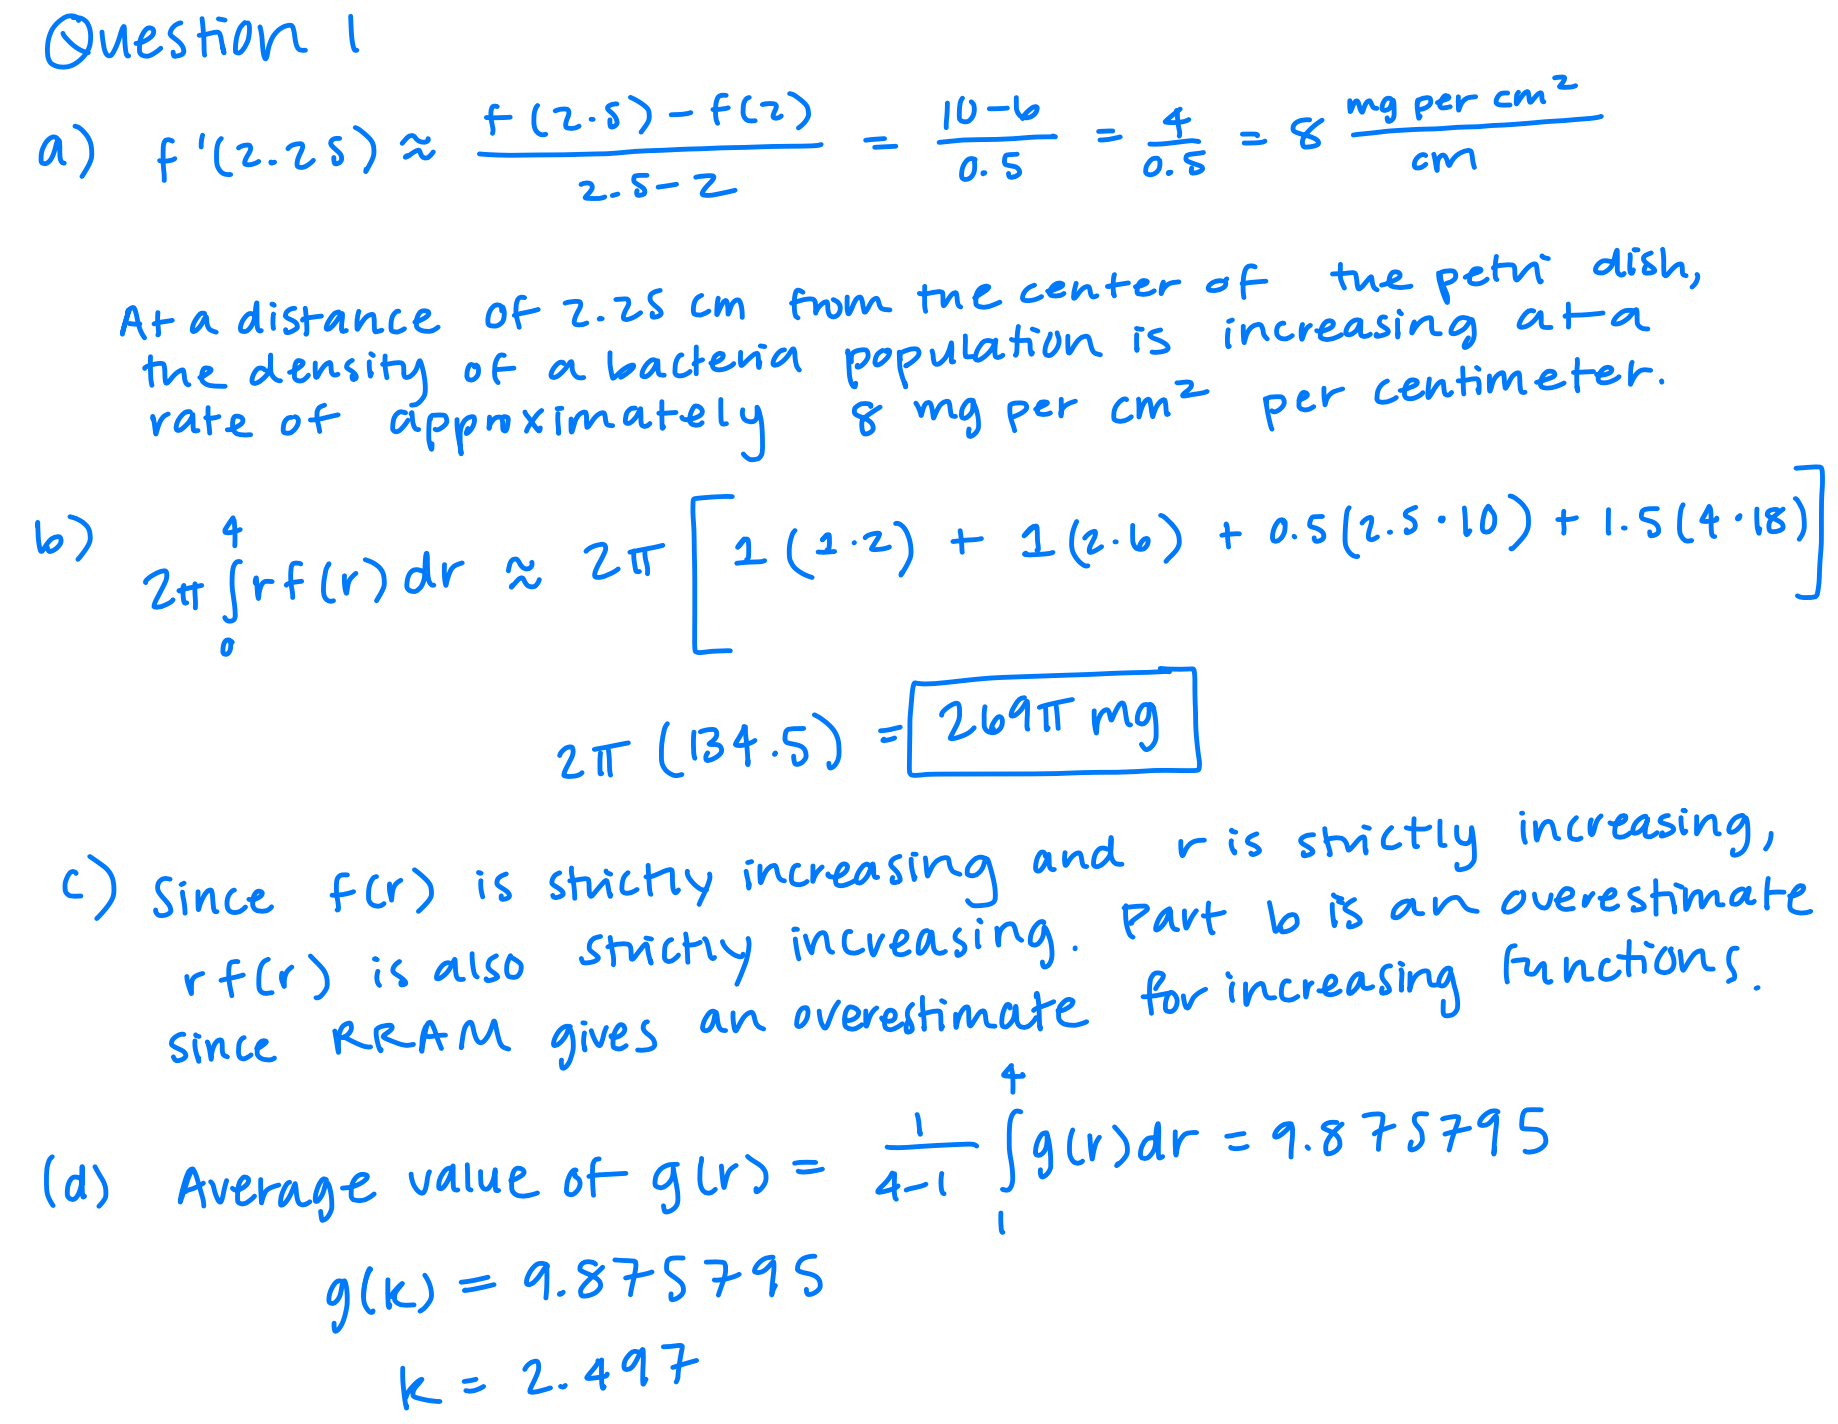 Question 1
a) f'(2.25) ≈ (f(2.5) - f(2))/(2.5 - 2) = (10-6)/0.5 = 4/0.5 = 8 (mg per cm²)/cm
At a distance of 2.25 cm from the center of the petri dish,
the density of a bacteria population is increasing at a
rate of approximately 8 mg per cm² per centimeter.
b) 2π ∫₀⁴ r f(r) dr ≈ 2π [1(1·2) + 1(2·6) + 0.5(2.5·10) + 1.5(4·18)]
2π (134.5) = 269π mg
c) Since f(r) is strictly increasing and r is strictly increasing,
r f(r) is also strictly increasing. Part b is an overestimate
since RRAM gives an overestimate for increasing functions.
(d) Average value of g(r) = 1/(4-1) ∫₁⁴ g(r) dr = 9.875795
g(k) = 9.875795
k = 2.497